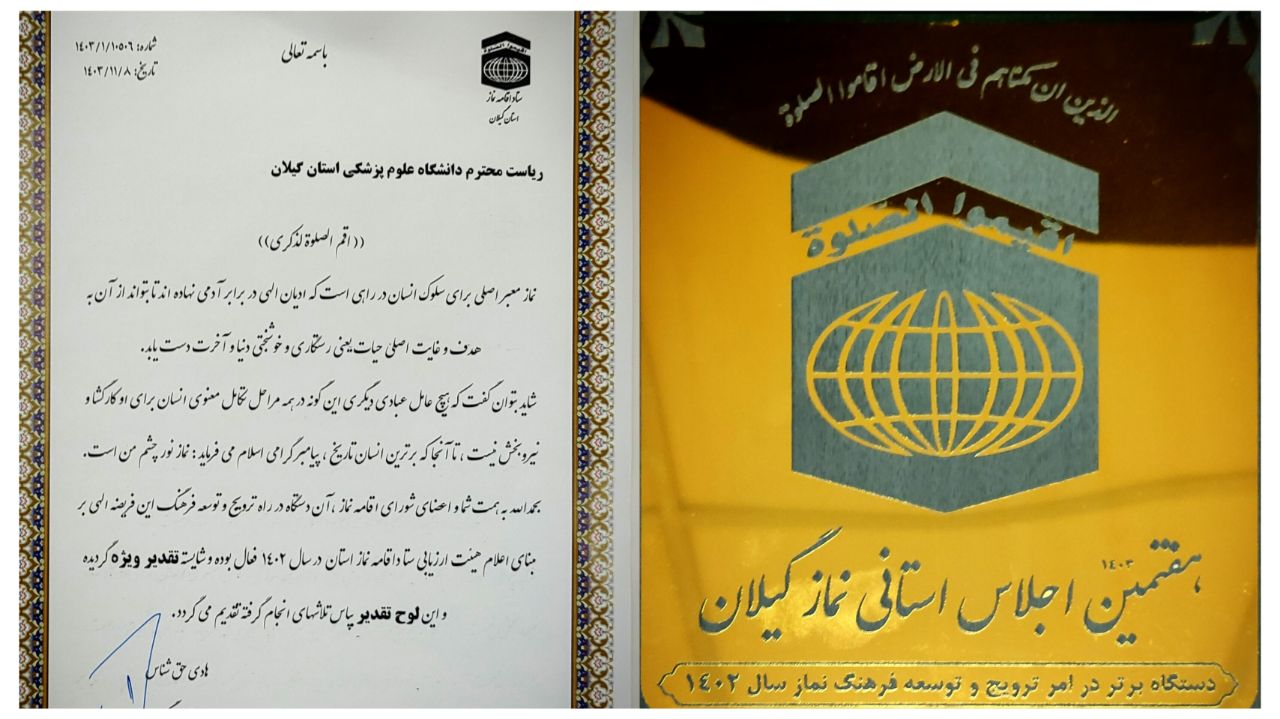 باسمه تعالی
شماره: ۱۴۰۳/۱/۱۰۵۰۶
تاریخ: ۱۴۰۳/۱۱/۸
اقیموا الصلوة
ستاد اقامه نماز
استان گیلان
ریاست محترم دانشگاه علوم پزشکی استان گیلان
((اقم الصلوة لذکری))
نماز معبر اصلی برای سلوک انسان در راهی است که ادیان الهی در برابر آدمی نهاده اند تا بتواند از آن به
هدف و غایت اصلی حیات یعنی رستگاری و خوشبختی دنیا و آخرت دست یابد.
شاید بتوان گفت که هیچ عامل عبادی دیگری این گونه در همه مراحل تکامل معنوی انسان برای او کارگشا و
نیروبخش نیست، تا آنجا که برترین انسان تاریخ، پیامبر گرامی اسلام می فرماید: نماز نور چشم من است.
بحمدالله به همت شما و اعضای شورای اقامه نماز، آن دستگاه در راه ترویج و توسعه فرهنگ این فریضه الهی بر
مبنای اعلام هیئت ارزیابی ستاد اقامه نماز استان در سال ۱۴۰۲ فعال بوده و شایسته تقدیر ویژه گردیده
و این لوح تقدیر بپاس تلاشهای انجام گرفته تقدیم می گردد.
هادی حق شناس
الذین ان مکناهم فی الارض اقاموا الصلوة
اقیموا الصلوة
هفتمین اجلاس استانی نماز گیلان
۱۴۰۳
دستگاه برتر در امر ترویج و توسعه فرهنگ نماز سال ۱۴۰۲